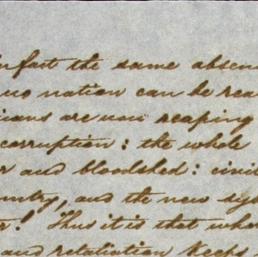 In fact the same absen
no nation can be rea
cians are now reaping
corruption: the whole
r and bloodshed: civil
untry, and the new sys
r! Thus it is that wher
and retaliation keeps